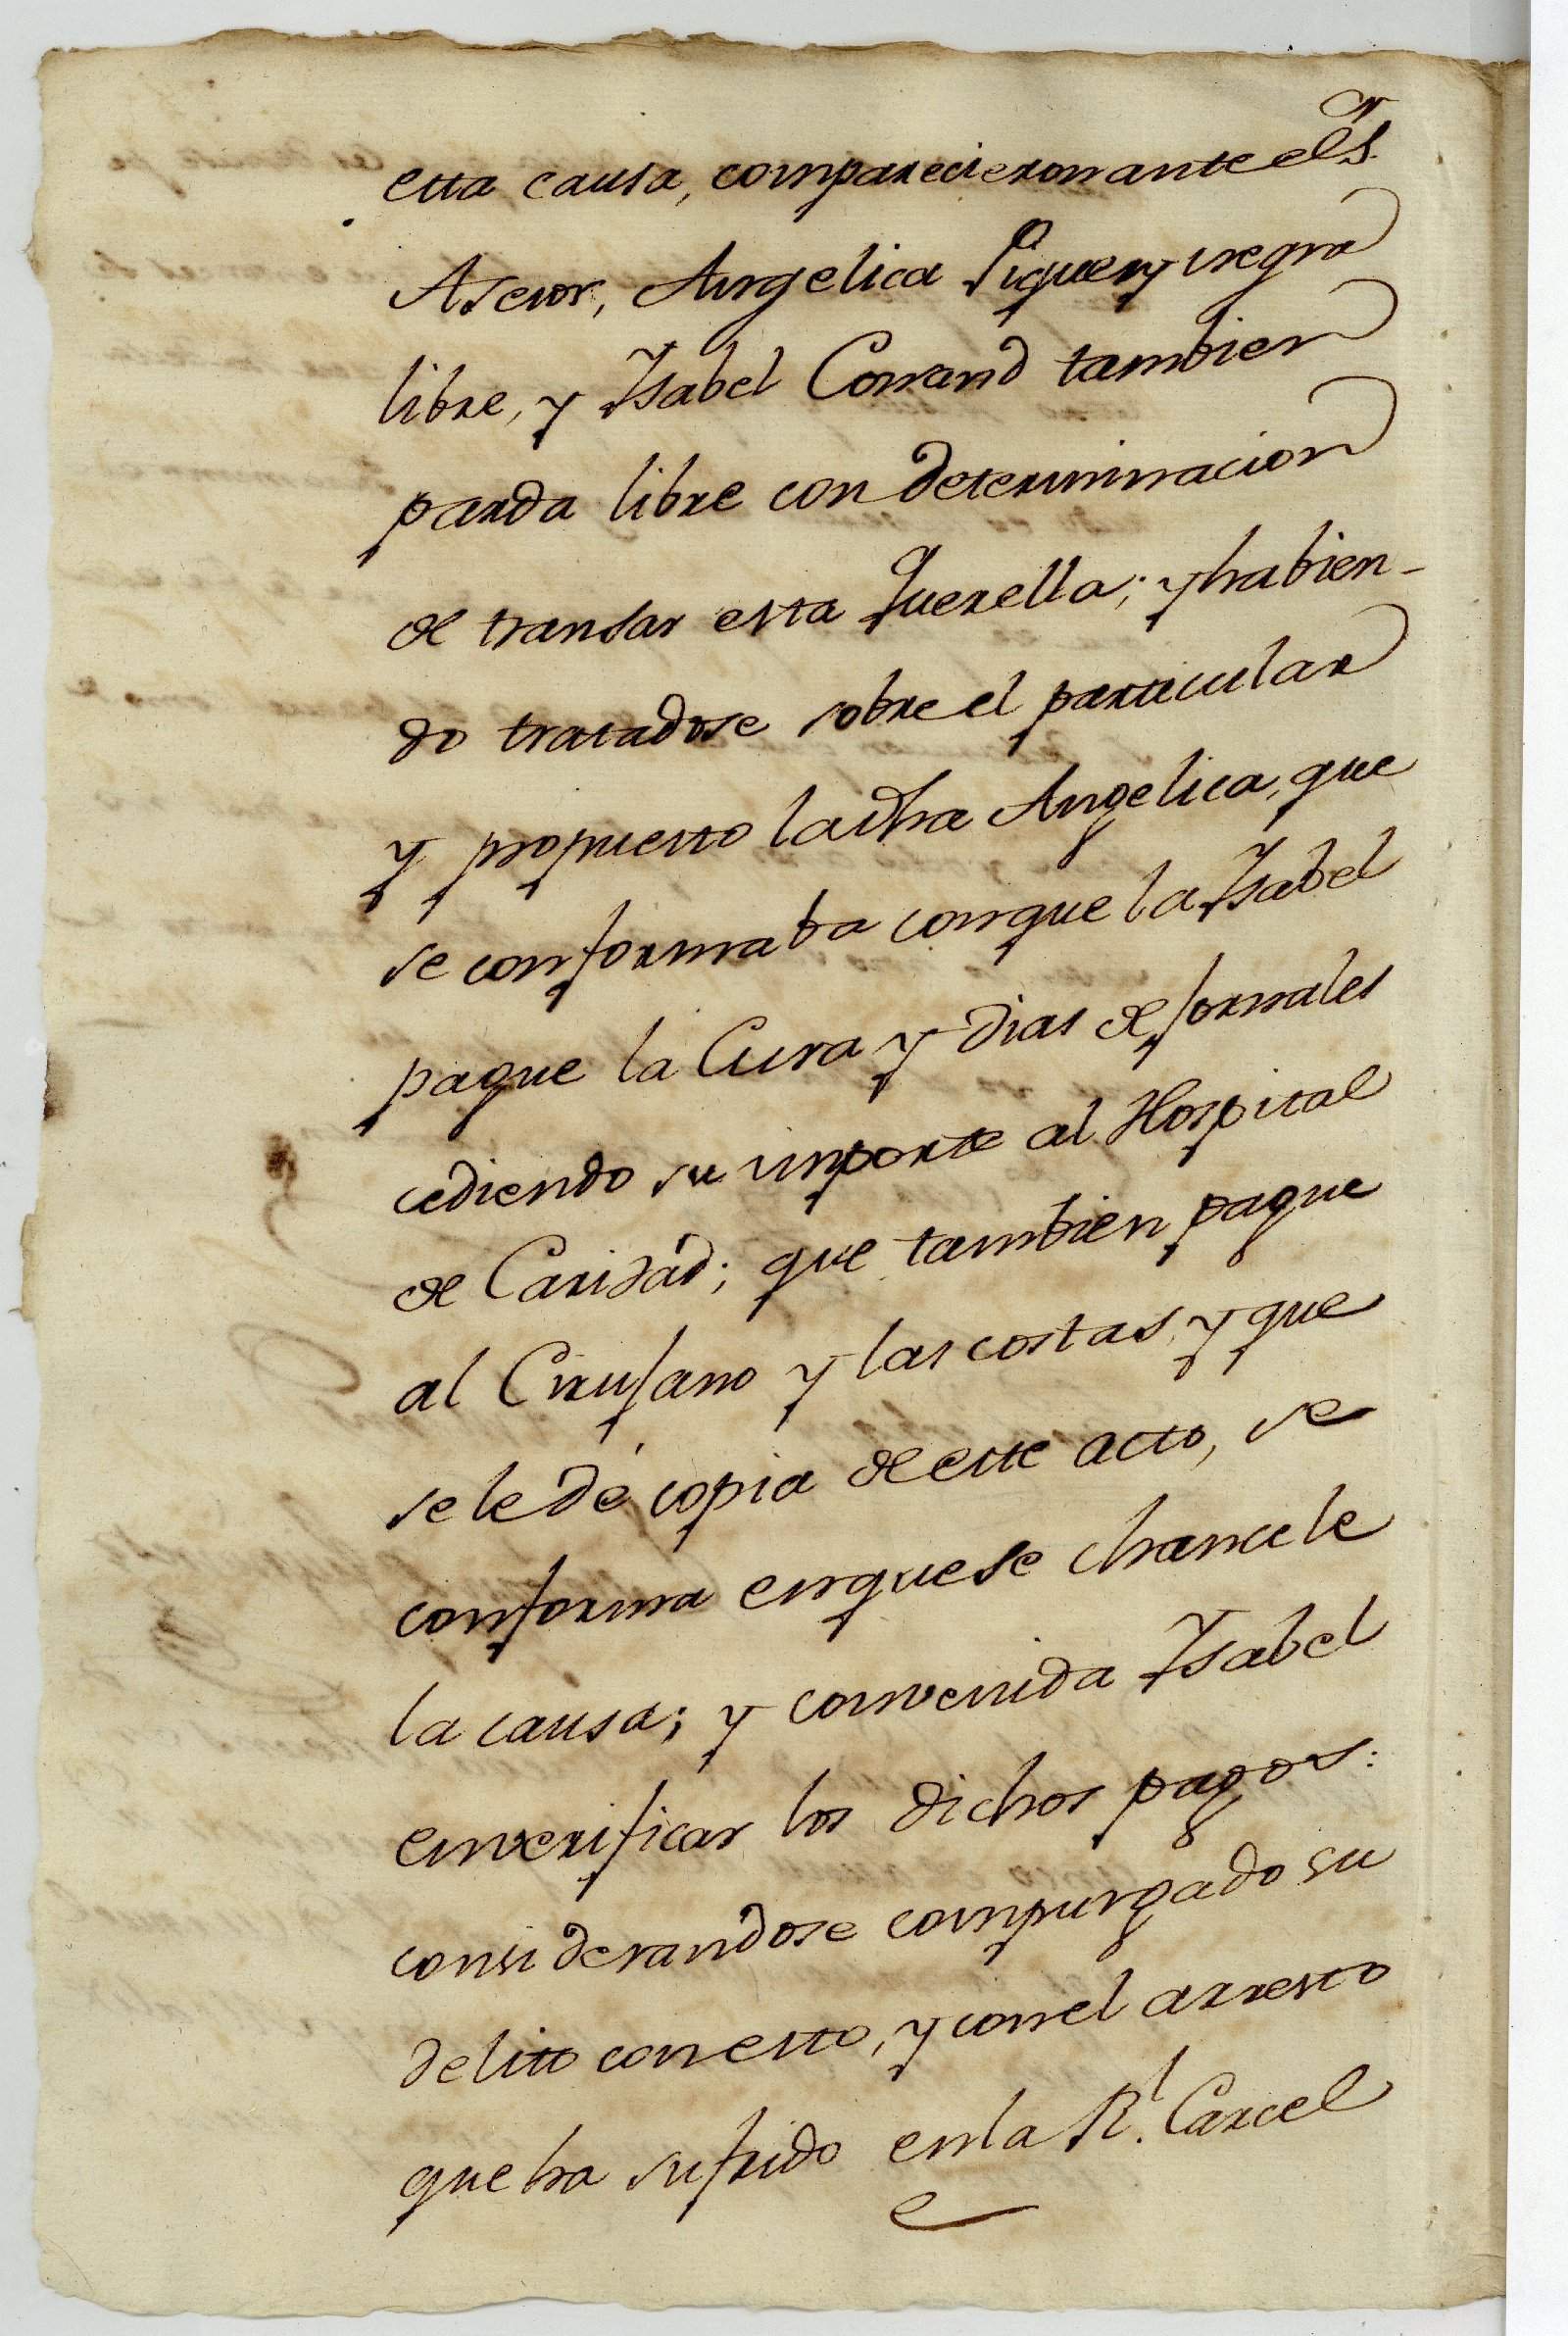 esta causa, comparecieron ante el S.r
Asesor, Angelica Piquery negra
libre, y Ysabel Conrand tambien
parda libre con determinacion
de transar esta Querella; y habien-
do tratadose sobre el particular
y propuesto la dha Angelica, que
se conformaba con que la Ysabel
pague la Cura y dias de jornales
cediendo su importe al Hospital
de Caridád; que tambien pague
al Cirujano y las costas, y que
se le dé copia de este acto, se
conforma en que se chancele
la causa; y convenida Ysabel
en verificar los dichos pagos:
considerandose compurgado su
delito con esto, y con el arresto
que ha sufrido en la R.l Carcel